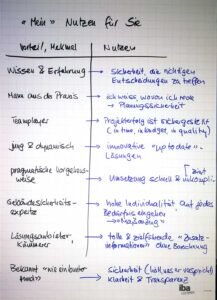 « Mein » Nutzen für Sie
Vorteil, Merkmal | Nutzen
Wissen & Erfahrung → Sicherheit, die richtigen
Entscheidungen zu treffen
Mann aus der Praxis → ich weiss, wovon ich rede
→ Planungssicherheit
Teamplayer → Projekterfolg ist sichergestellt
(in time, in budget, in quality)
jung & dynamisch → innovative "up to date"-
Lösungen
pragmatische Vorgehens-
weise → Umsetzung schnell & unkompli-
ziert
Gebäudesicherheits-
experte → hohe Individualität, auf jedes
Bedürfnis eingehen
Lösungsanbieter,
kümmerer → tolle & zielführende "Zusatz-
informationen" ohne Berechnung
Bekannt "wie ein bunter
Hund" → Sicherheit (hält, was er verspricht)
Klarheit & Transparenz
iba